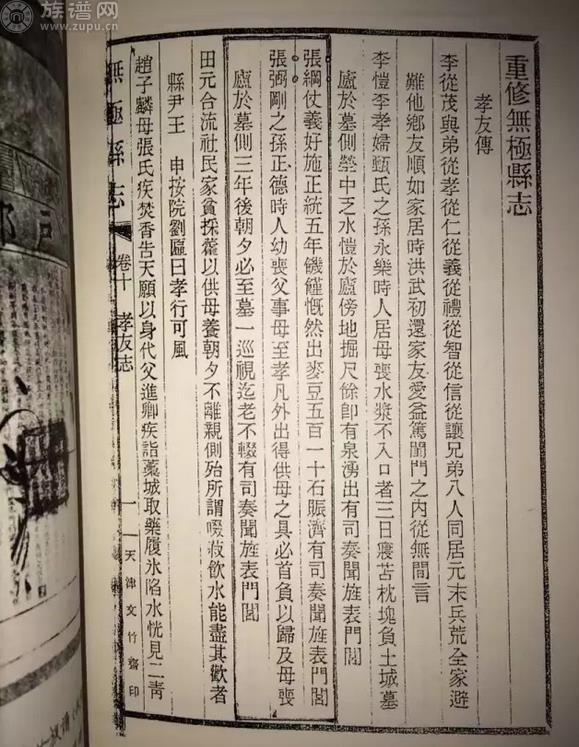 族谱网
www.zupu.cn
重修無極縣志
孝友傳
李從茂與弟從孝從仁從義從禮從智從信從讓兄弟八人同居元末兵荒全家避
難他鄉友順如家居時洪武初還家友愛益篤闔門之內從無間言
李愷李孝婦甄氏之孫永樂時人居母喪水漿不入口者三日寢苫枕塊負土城墓
廬於墓側塋中乏水愷於廬傍地掘尺餘卽有泉湧出有司奏聞旌表門閭
張綱仗義好施正統五年饑饉慨然出麥豆五百一十石賑濟有司奏聞旌表門閭
張弼剛之孫正德時人幼喪父事母至孝凡外出得供母之具必首負以歸及母喪
廬於墓側三年後朝夕必至墓一巡視迄老不輟有司奏聞旌表門閭
田元合流社民家貧採藿以供母養朝夕不離親側殆所謂啜菽飲水能盡其歡者
縣尹王 申按院劉匾曰孝行可風
趙子麟母張氏疾焚香告天願以身代父進卿疾詣藁城取藥履氷陷水恍見二靑
無極縣志 卷十 孝友志 一 天津文竹齋印